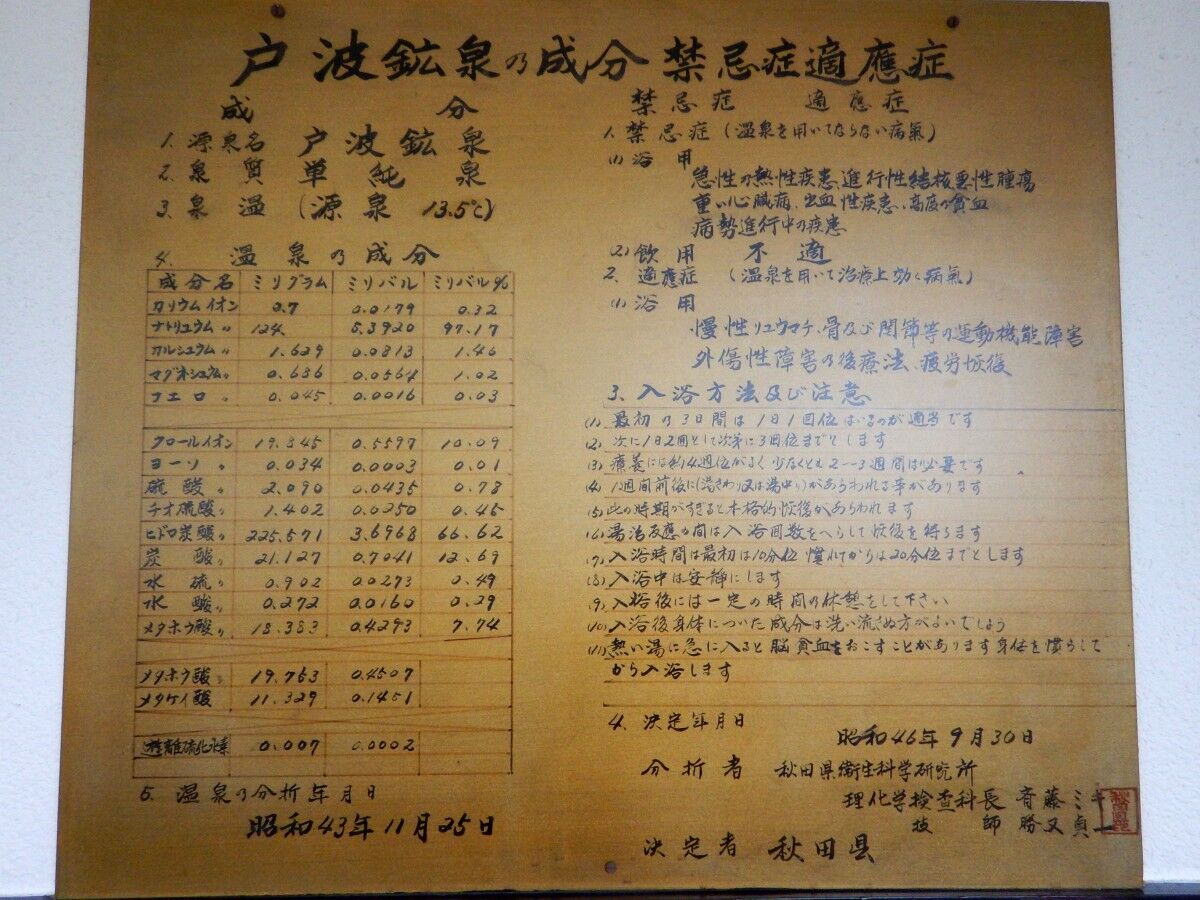 戸波鉱泉の成分禁忌症適應症
成分
1. 源泉名 戸波鉱泉
2. 泉質 単純泉
3. 泉温 (源泉 13.5℃)
4. 温泉の成分
成分名 ミリグラム ミリバル ミリバル%
カリウムイオン 0.7 0.0179 0.32
ナトリュウム〃 124 5.3920 97.17
カルシュウム〃 1.629 0.0813 1.46
マグネシュウム〃 0.686 0.0564 1.02
フエロ〃 0.045 0.0016 0.03
クロールイオン 19.845 0.5597 10.09
ヨーソ〃 0.034 0.0003 0.01
硫酸〃 2.090 0.0435 0.78
チオ硫酸〃 1.402 0.0250 0.45
ヒドロ炭酸〃 225.571 3.6968 66.62
炭酸〃 21.127 0.7041 12.69
水硫〃 0.902 0.0273 0.49
水酸〃 0.272 0.0160 0.29
メタホウ酸〃 18.383 0.4293 7.74
メタホウ酸 19.763 0.4507
メタケイ酸 11.329 0.1451
遊離硫化水素 0.007 0.0002
5. 温泉の分折年月日
昭和43年11月25日
禁忌症 適應症
1. 禁忌症 (温泉を用いてならない病氣)
(1) 浴用
急性の熱性疾患、進行性結核悪性腫瘍
重い心臓病、出血性疾患、高度の貧血
病勢進行中の疾患
(2) 飲用 不適
2. 適應症 (温泉を用いて治療上効く病氣)
(1) 浴用
慢性リュウマチ、骨及び関節等の運動機能障害
外傷性障害の後療法、疲労恢復
3. 入浴方法及び注意
(1) 最初の3日間は1日1回位はいるのが適当です
(2) 次に1日2回として次第に3回位までとします
(3) 療養には約4週位がよく少なくとも2〜3週間は必要です
(4) 1週間前後に(湯さわり又は湯中り)があらわれる事があります
(5) 此の時期がすぎると本格的恢復があらわれます
(6) 湯治反應の間は入浴回数をへらして恢復を待ちます
(7) 入浴時間は最初は10分位 慣れてからは20分位までとします
(8) 入浴中は安静にします
(9) 入浴後には一定の時間の休憩をして下さい
(10) 入浴後身体についた成分は洗い流さぬ方がよいでしよう
(11) 熱い湯に急に入ると脳貧血をおこすことがあります身体を慣らして
から入浴します
4. 決定年月日
昭和46年9月30日
分折者 秋田県衛生科学研究所
理化学検査科長 斉藤ミキ
技師 勝又貞一
決定者 秋田県